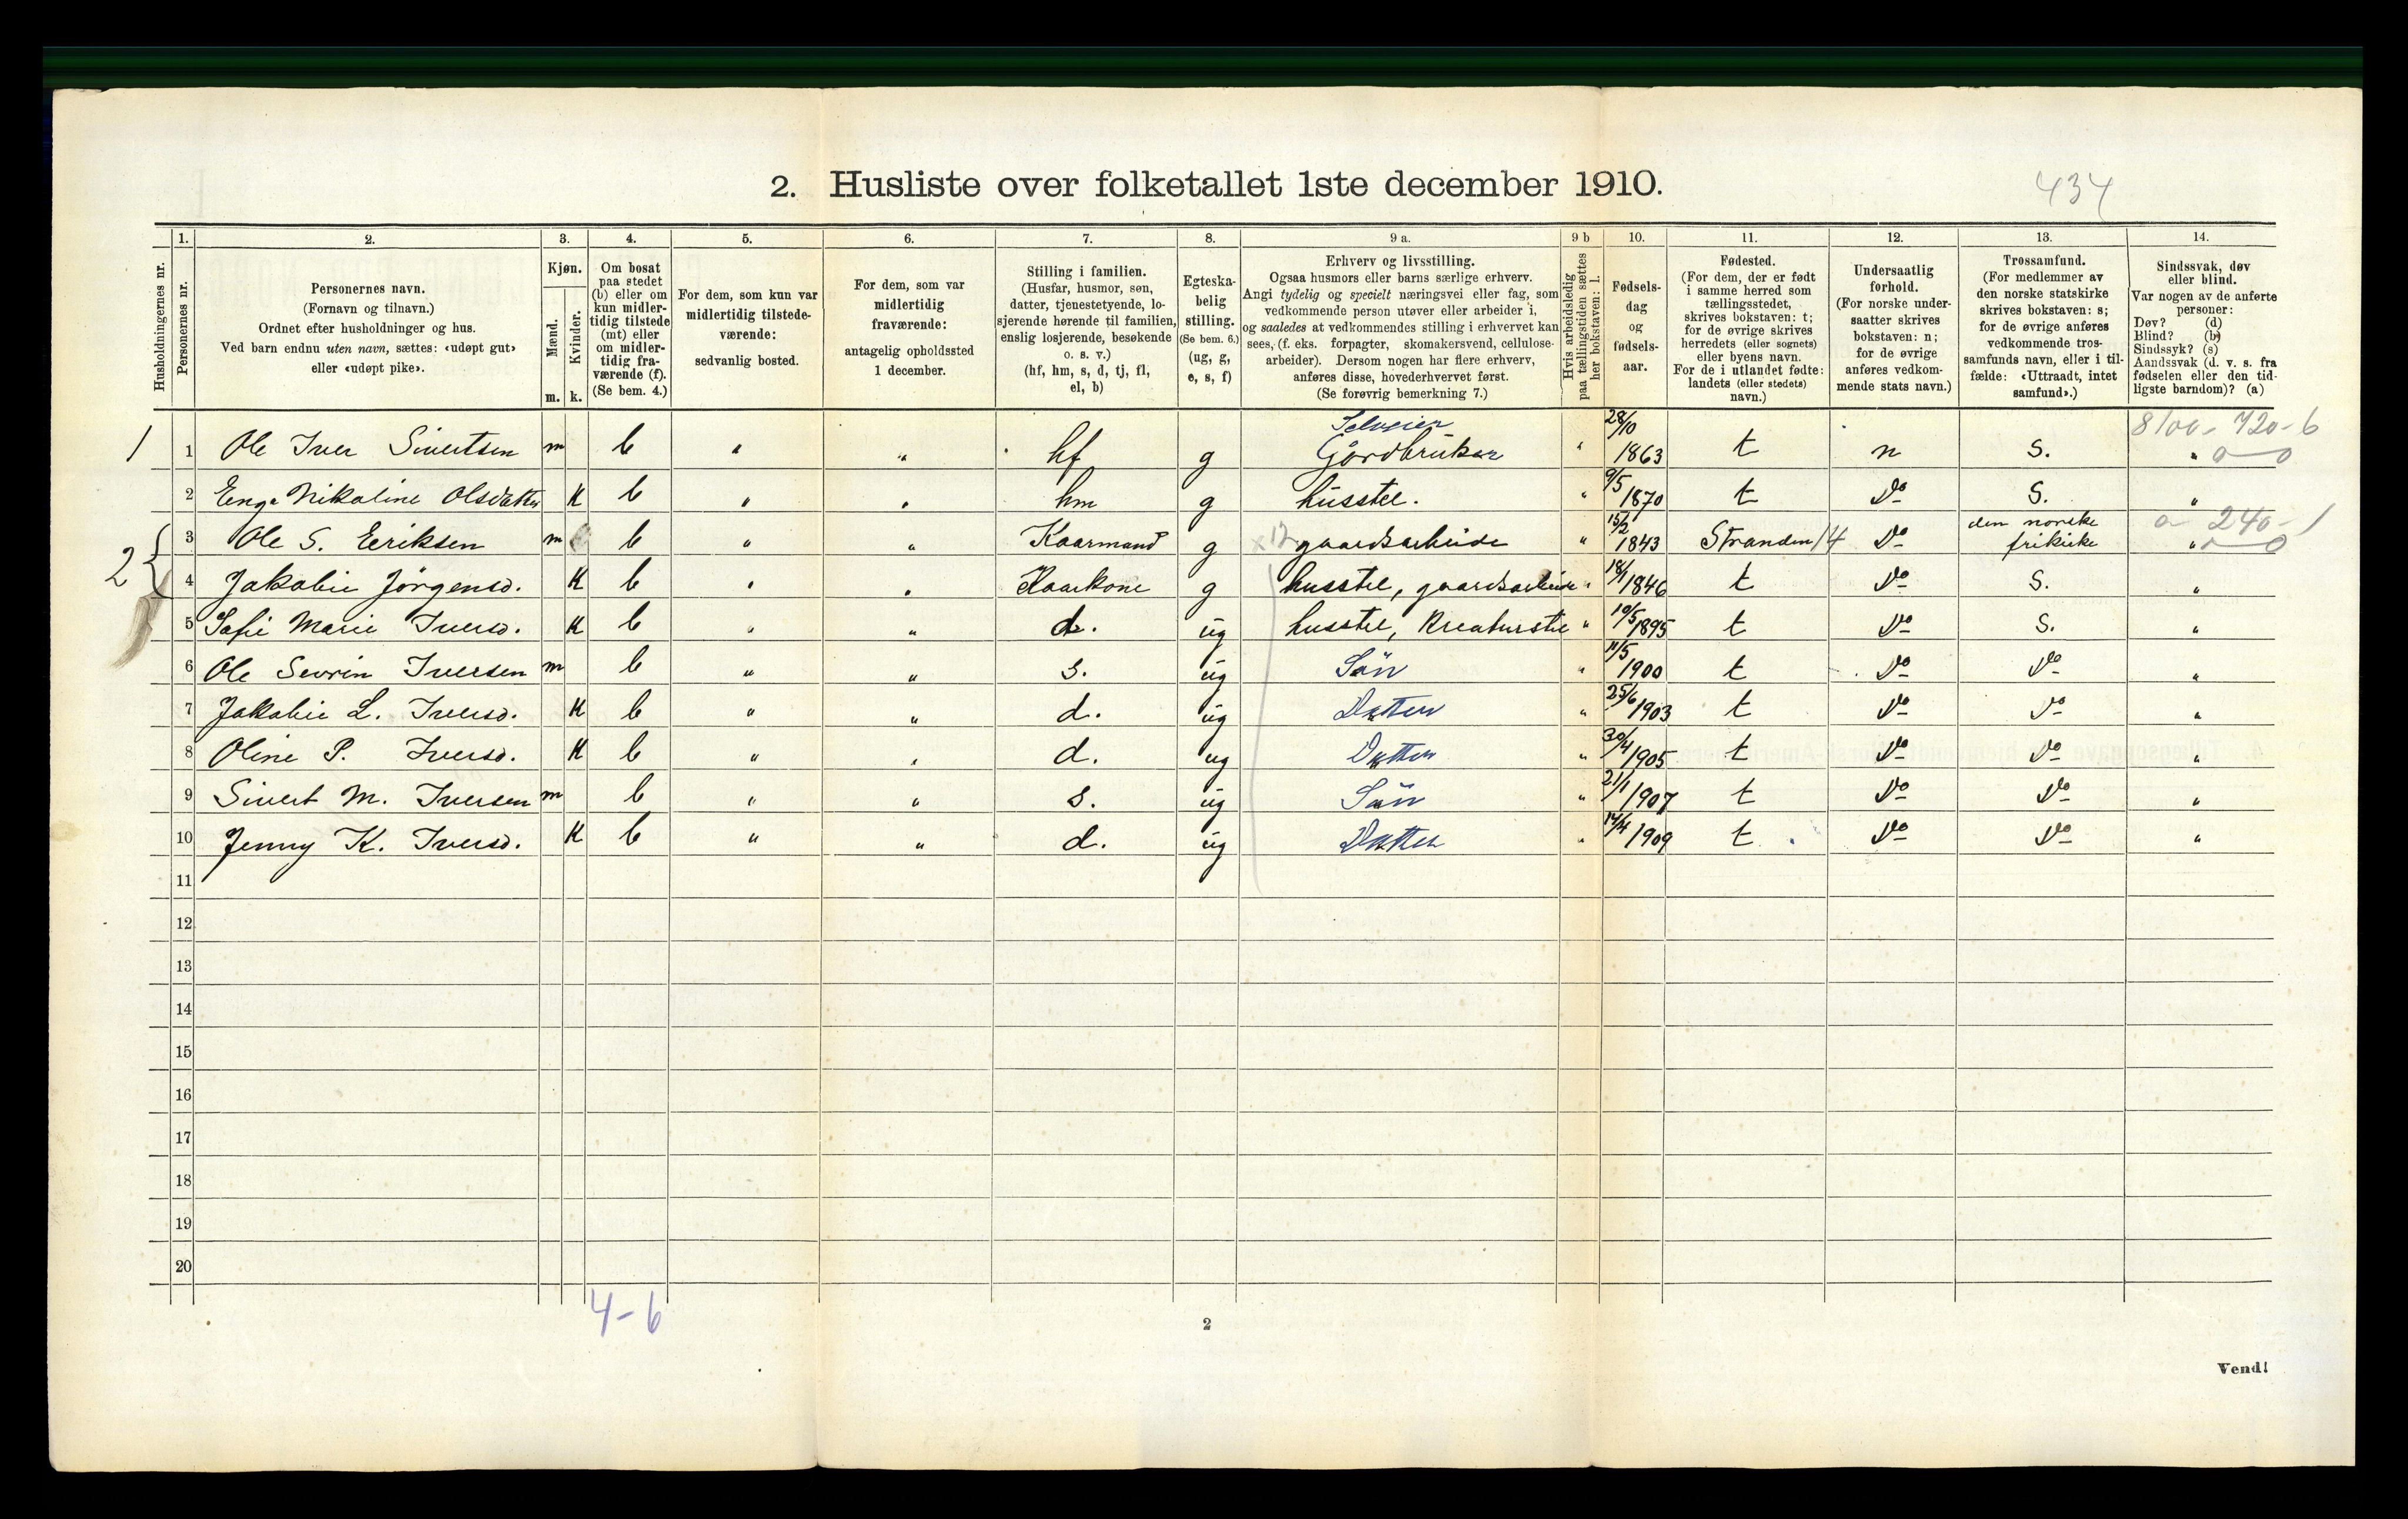 2. Husliste over folketallet 1ste december 1910.
434
1. 2. 3. 4. 5. 6. 7. 8. 9 a. 9 b 10. 11. 12. 13. 14.
Husholdningernes nr.
Personernes nr.
Personernes navn.
(Fornavn og tilnavn.)
Ordnet efter husholdninger og hus.
Ved barn endnu uten navn, sættes: «udøpt gut»
eller «udøpt pike».
Kjøn.
Mænd.
Kvinder.
m. k.
Om bosat
paa stedet
(b) eller om
kun midler-
tidig tilstede
(mt) eller
om midler-
tidig fra-
værende (f).
(Se bem. 4.)
For dem, som kun var
midlertidig tilstede-
værende:
sedvanlig bosted.
For dem, som var
midlertidig
fraværende:
antagelig opholdssted
1 december.
Stilling i familien.
(Husfar, husmor, søn,
datter, tjenestetyende, lo-
sjerende hørende til familien,
enslig losjerende, besøkende
o. s. v.)
(hf, hm, s, d, tj, fl,
el, b)
Egteska-
belig
stilling.
(Se bem. 6.)
(ug, g,
e, s, f)
Erhverv og livsstilling.
Ogsaa husmors eller barns særlige erhverv.
Angi tydelig og specielt næringsvei eller fag, som
vedkommende person utøver eller arbeider i,
og saaledes at vedkommendes stilling i erhvervet kan
sees, (f. eks. forpagter, skomakersvend, cellulose-
arbeider). Dersom nogen har flere erhverv,
anføres disse, hovederhvervet først.
(Se forøvrig bemerkning 7.)
Hvis arbeidsledig
paa tællingstiden sættes
her bokstaven: l.
Fødsels-
dag
og
fødsels-
aar.
Fødested.
(For dem, der er født
i samme herred som
tællingsstedet,
skrives bokstaven: t;
for de øvrige skrives
herredets (eller sognets)
eller byens navn.
For de i utlandet fødte:
landets (eller stedets)
navn.)
Undersaatlig
forhold.
(For norske under-
saatter skrives
bokstaven: n;
for de øvrige
anføres vedkom-
mende stats navn.)
Trossamfund.
(For medlemmer av
den norske statskirke
skrives bokstaven: s;
for de øvrige anføres
vedkommende tros-
samfunds navn, eller i til-
fælde: «Uttraadt, intet
samfund».)
Sindssvak, døv
eller blind.
Var nogen av de anførte
personer:
Døv? (d)
Blind? (b)
Sindssyk? (s)
Aandssvak (d. v. s. fra
fødselen eller den tid-
ligste barndom)? (a)
Selveier 8100 - 720 - 6
1 1 Ole Iver Sivertsen m b " " hf g Gårdbruker " 28/10 1863 t n s. " 0 0
2 Enga Nikoline Olsdatter K b " " hm g husstel. " 9/5 1870 t Do S. "
den norske 0 240 - 1
2 { 3 Ole S. Eeriksen m b " " Kaarmand g x 12 gaardsarbeide " 15/2 1843 Stranden 14 Do frikirke " 0 0
4 Jakobie Jörgensd. K b " " Kaarkone g husstel, gaardsarbeide " 18/1 1846 t Do S. "
5 Sofie Marie Iversd. K b " " d. ug husstel, Kreaturstel " 10/5 1895 t Do S. "
6 Ole Sevrin Iversen m b " " s. ug Sön " 11/5 1900 t Do Do "
7 Jakobie L. Iversd. K b " " d. ug Datter " 25/6 1903 t Do Do "
8 Oline P. Iversd. K b " " d. ug Datter " 30/4 1905 t Do Do "
9 Sivert M. Iversen m b " " s. ug Sön " 21/1 1907 t Do Do "
10 Jenny K. Iversd. K b " " d. ug Datter " 14/4 1909 t Do Do "
11
12
13
14
15
16
17
18
19
20
4-6
2
Vend!